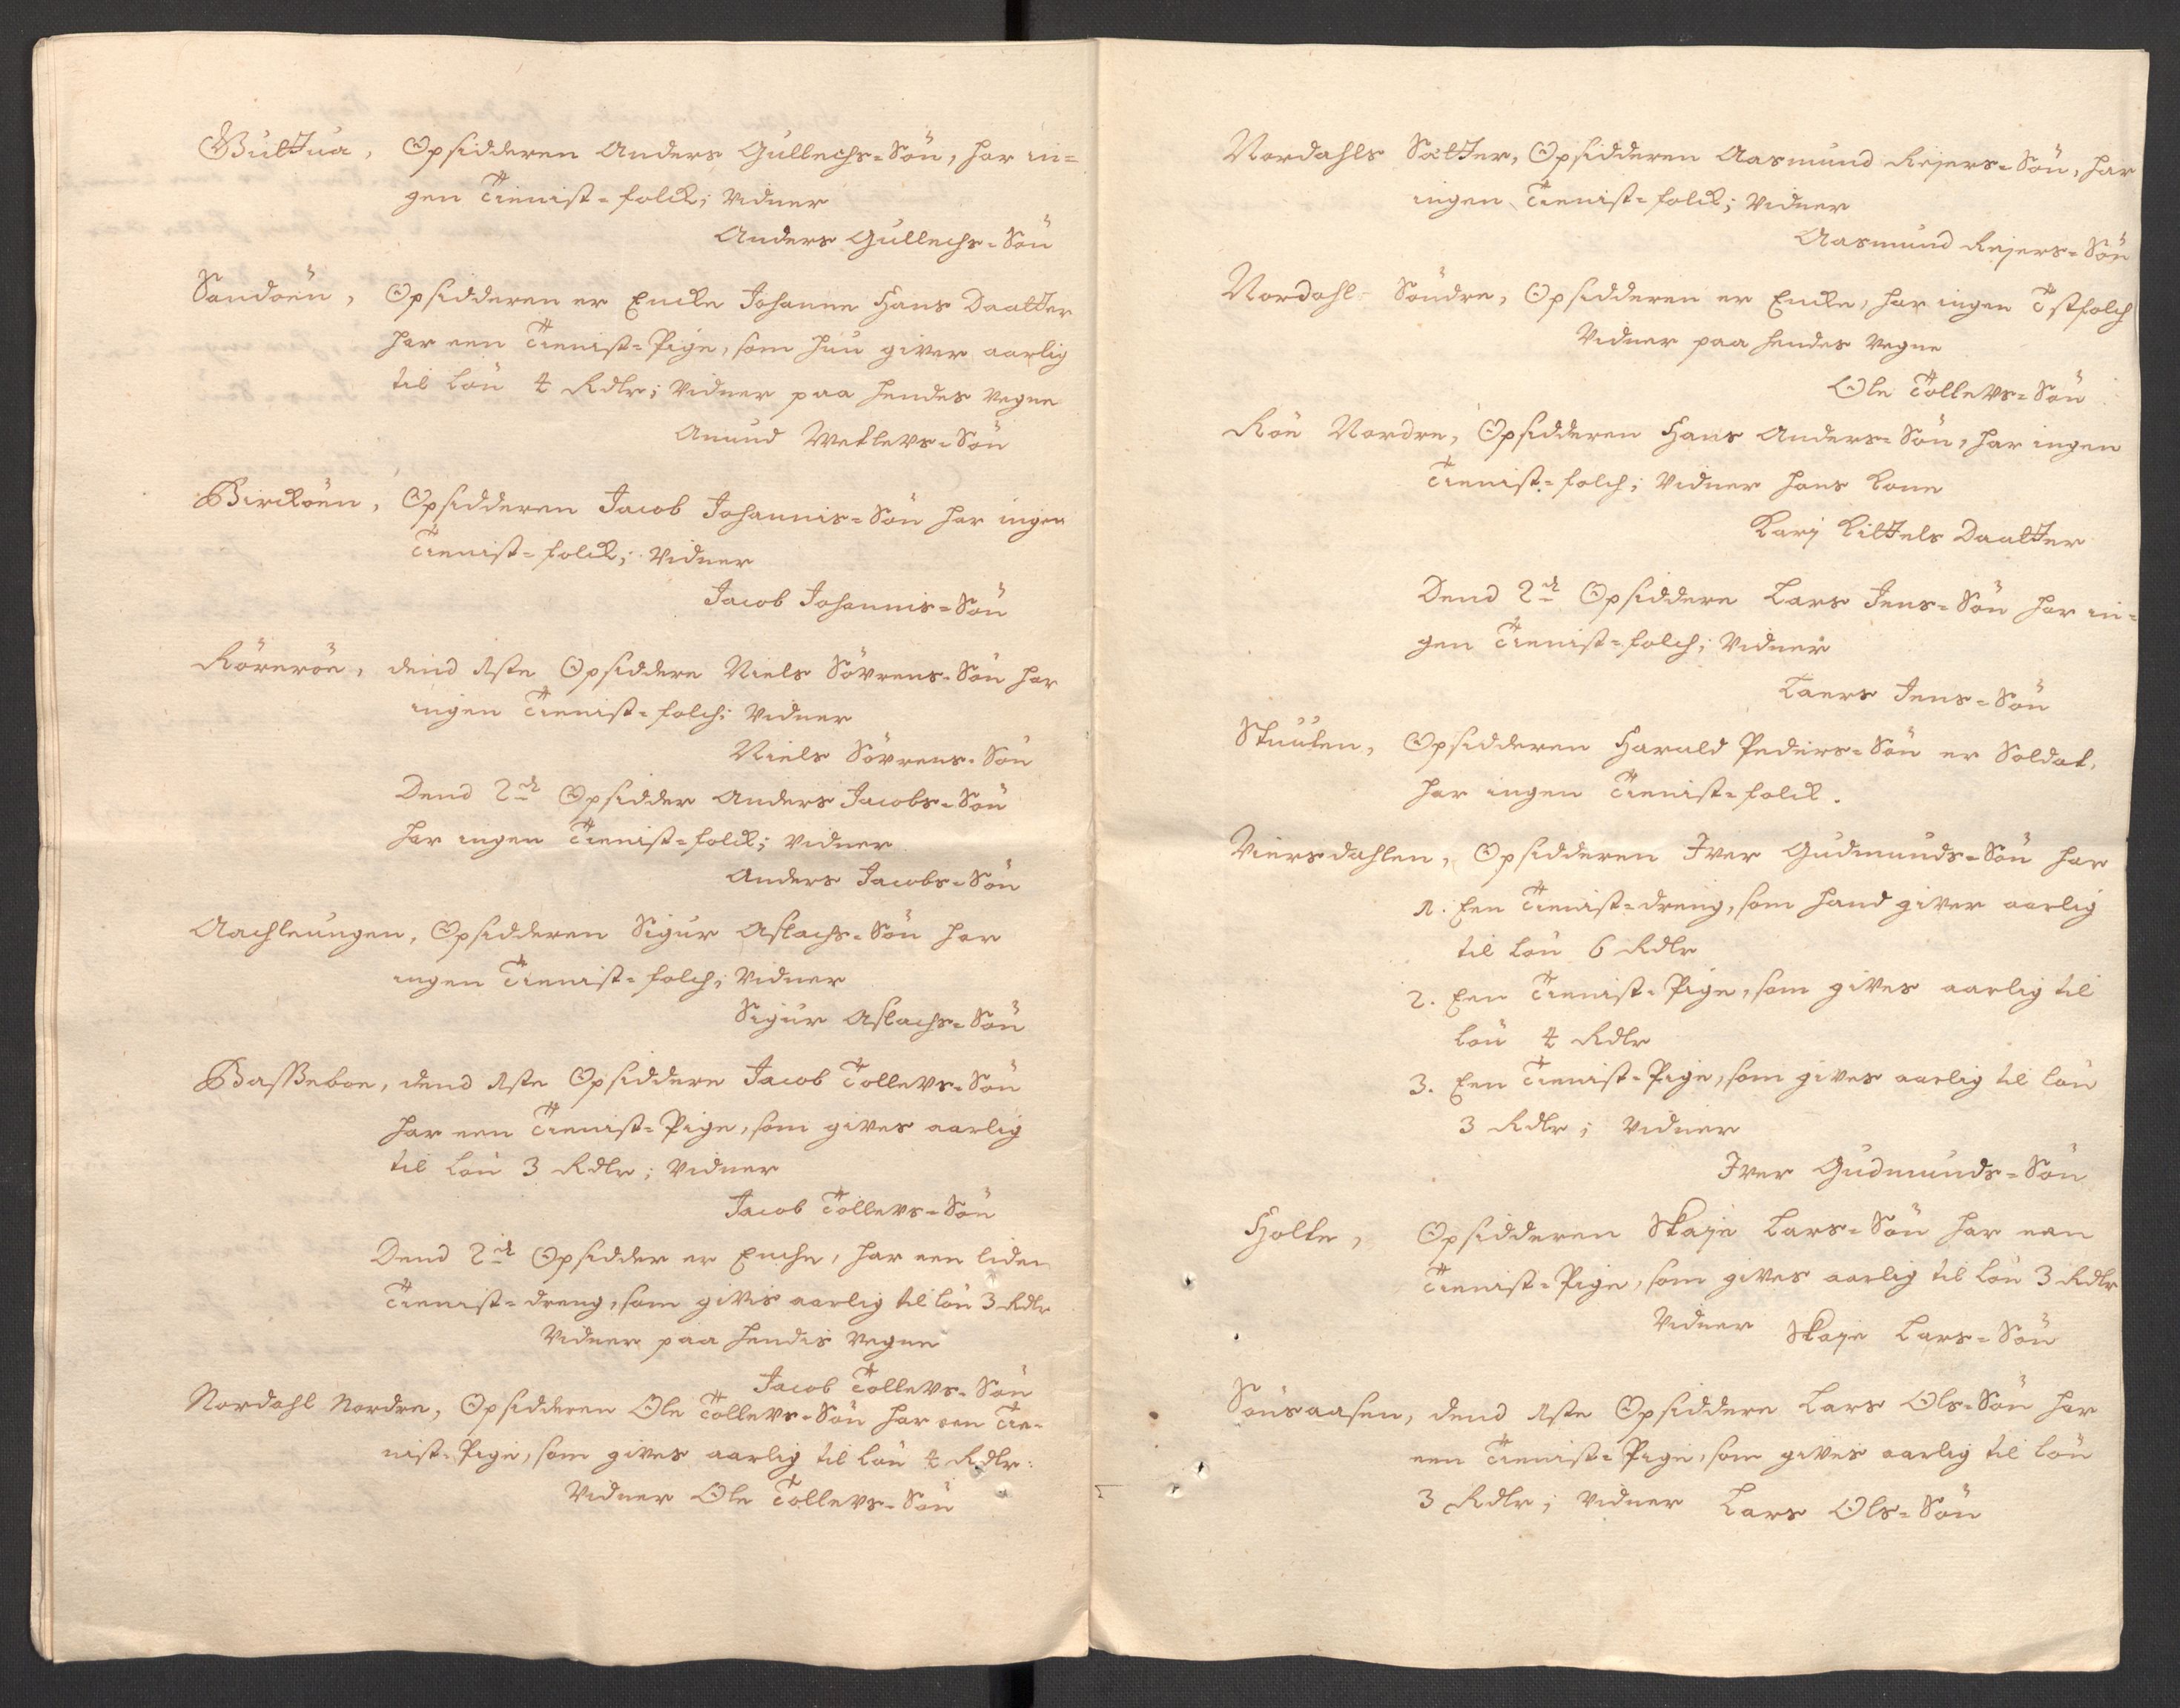 Buttua, Opsidderen Anders Gullechs-Sön, har in-
gen Tienist-folck; Vidner
Anders Gullechs-Sön
Sandöen, Opsidderen er Encke Johanne Hans Daatter
har een Tienist-Pige, som hun giver aarlig
til Lön 4 Rdlr; Vidner paa hendes Vegne
Amund Wetlevs-Sön
Birchöen, Opsidderen Jacob Johannis-Sön har ingen
Tienist-folck; Vidner
Jacob Johannis-Sön
Röreröe, dend 1ste Opsiddere Niels Sövrens-Sön har
ingen Tienist-folch; Vidner
Niels Sövrens-Sön
Dend 2d Opsidder Anders Jacobs-Sön
har ingen Tienist-folck; Vidner
Anders Jacobs-Sön
Aachleungen, Opsidderen Sigur Aslachs-Sön har
ingen Tienist-folch; Vidner
Sigur Aslachs-Sön
Basseboe, dend 1ste Opsiddere Jacob Tollevs-Sön
har een Tienist-Pige, som gives aarlig
til Lön 3 Rdlr; Vidner
Jacob Tollevs-Sön
Dend 2d Opsidder er Enche, har een liden
Tienist-dreng, som givis aarlig til Lön 3 Rdlr
Vidner paa hendis Vegne
Jacob Tollevs-Sön
Nordahl Nordre, Opsidderen Ole Tollevs-Sön har een Tie-
nist-Pige, som gives aarlig til Lön 4 Rdlr:
Vidner Ole Tollevs-Sön
Nordahls Sætter, Opsidderen Aasmund Rejers-Sön, har
ingen Tienist-folck; Vidner
Aasmund Rejers-Sön
Nordahl Söndre, Opsidderen er Encke, har ingen Tstfolch
Vidner paa hendes Vegne
Ole Tollevs-Sön
Röe Nordre, Opsidderen Hans Anders-Sön, har ingen
Tienist-folch; Vidner hans Kone
Karj Kittels Daatter
Dend 2d Opsiddere Lars Jens-Sön har in-
gen Tienist-folch; Vidner
Laers Jens-Sön
Stuulen, Opsidderen Harald Peders-Sön er Soldat,
har ingen Tienist-folck.
Viersdahlen, Opsidderen Iver Gudmunds-Sön har
1. Een Tienist-dreng, som hand giver aarlig
til Lön 6 Rdlr
2. Een Tienist-Pige, som gives aarlig til
Lön 4 Rdlr
3. Een Tienist-Pige, som gives aarlig til Lön
3 Rdlr; Vidner
Iver Gudmunds-Sön
Holte, Opsidderen Skaje Lars-Sön har een
Tienist-Pige, som gives aarlig til Lön 3 Rdlr
Vidner Skaje Lars-Sön
Sönsaasen, dend 1ste Opsiddere Lars Ols-Sön har
een Tienist-Pige, som gives aarlig til Lön
3 Rdlr; Vidner Lars Ols-Sön